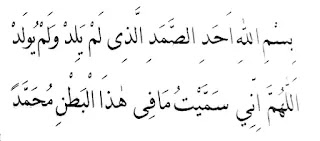 بِسْمِ اللهِ اَحَدِ الصَّمَدِ الَّذِى لَمْ يَلِدْ وَلَمْ يُولَدْ
اَللّٰهُمَّ اِنِّي سَمَّيْتُ مَا فِى هٰذَا الْبَطْنِ مُحَمَّدًا